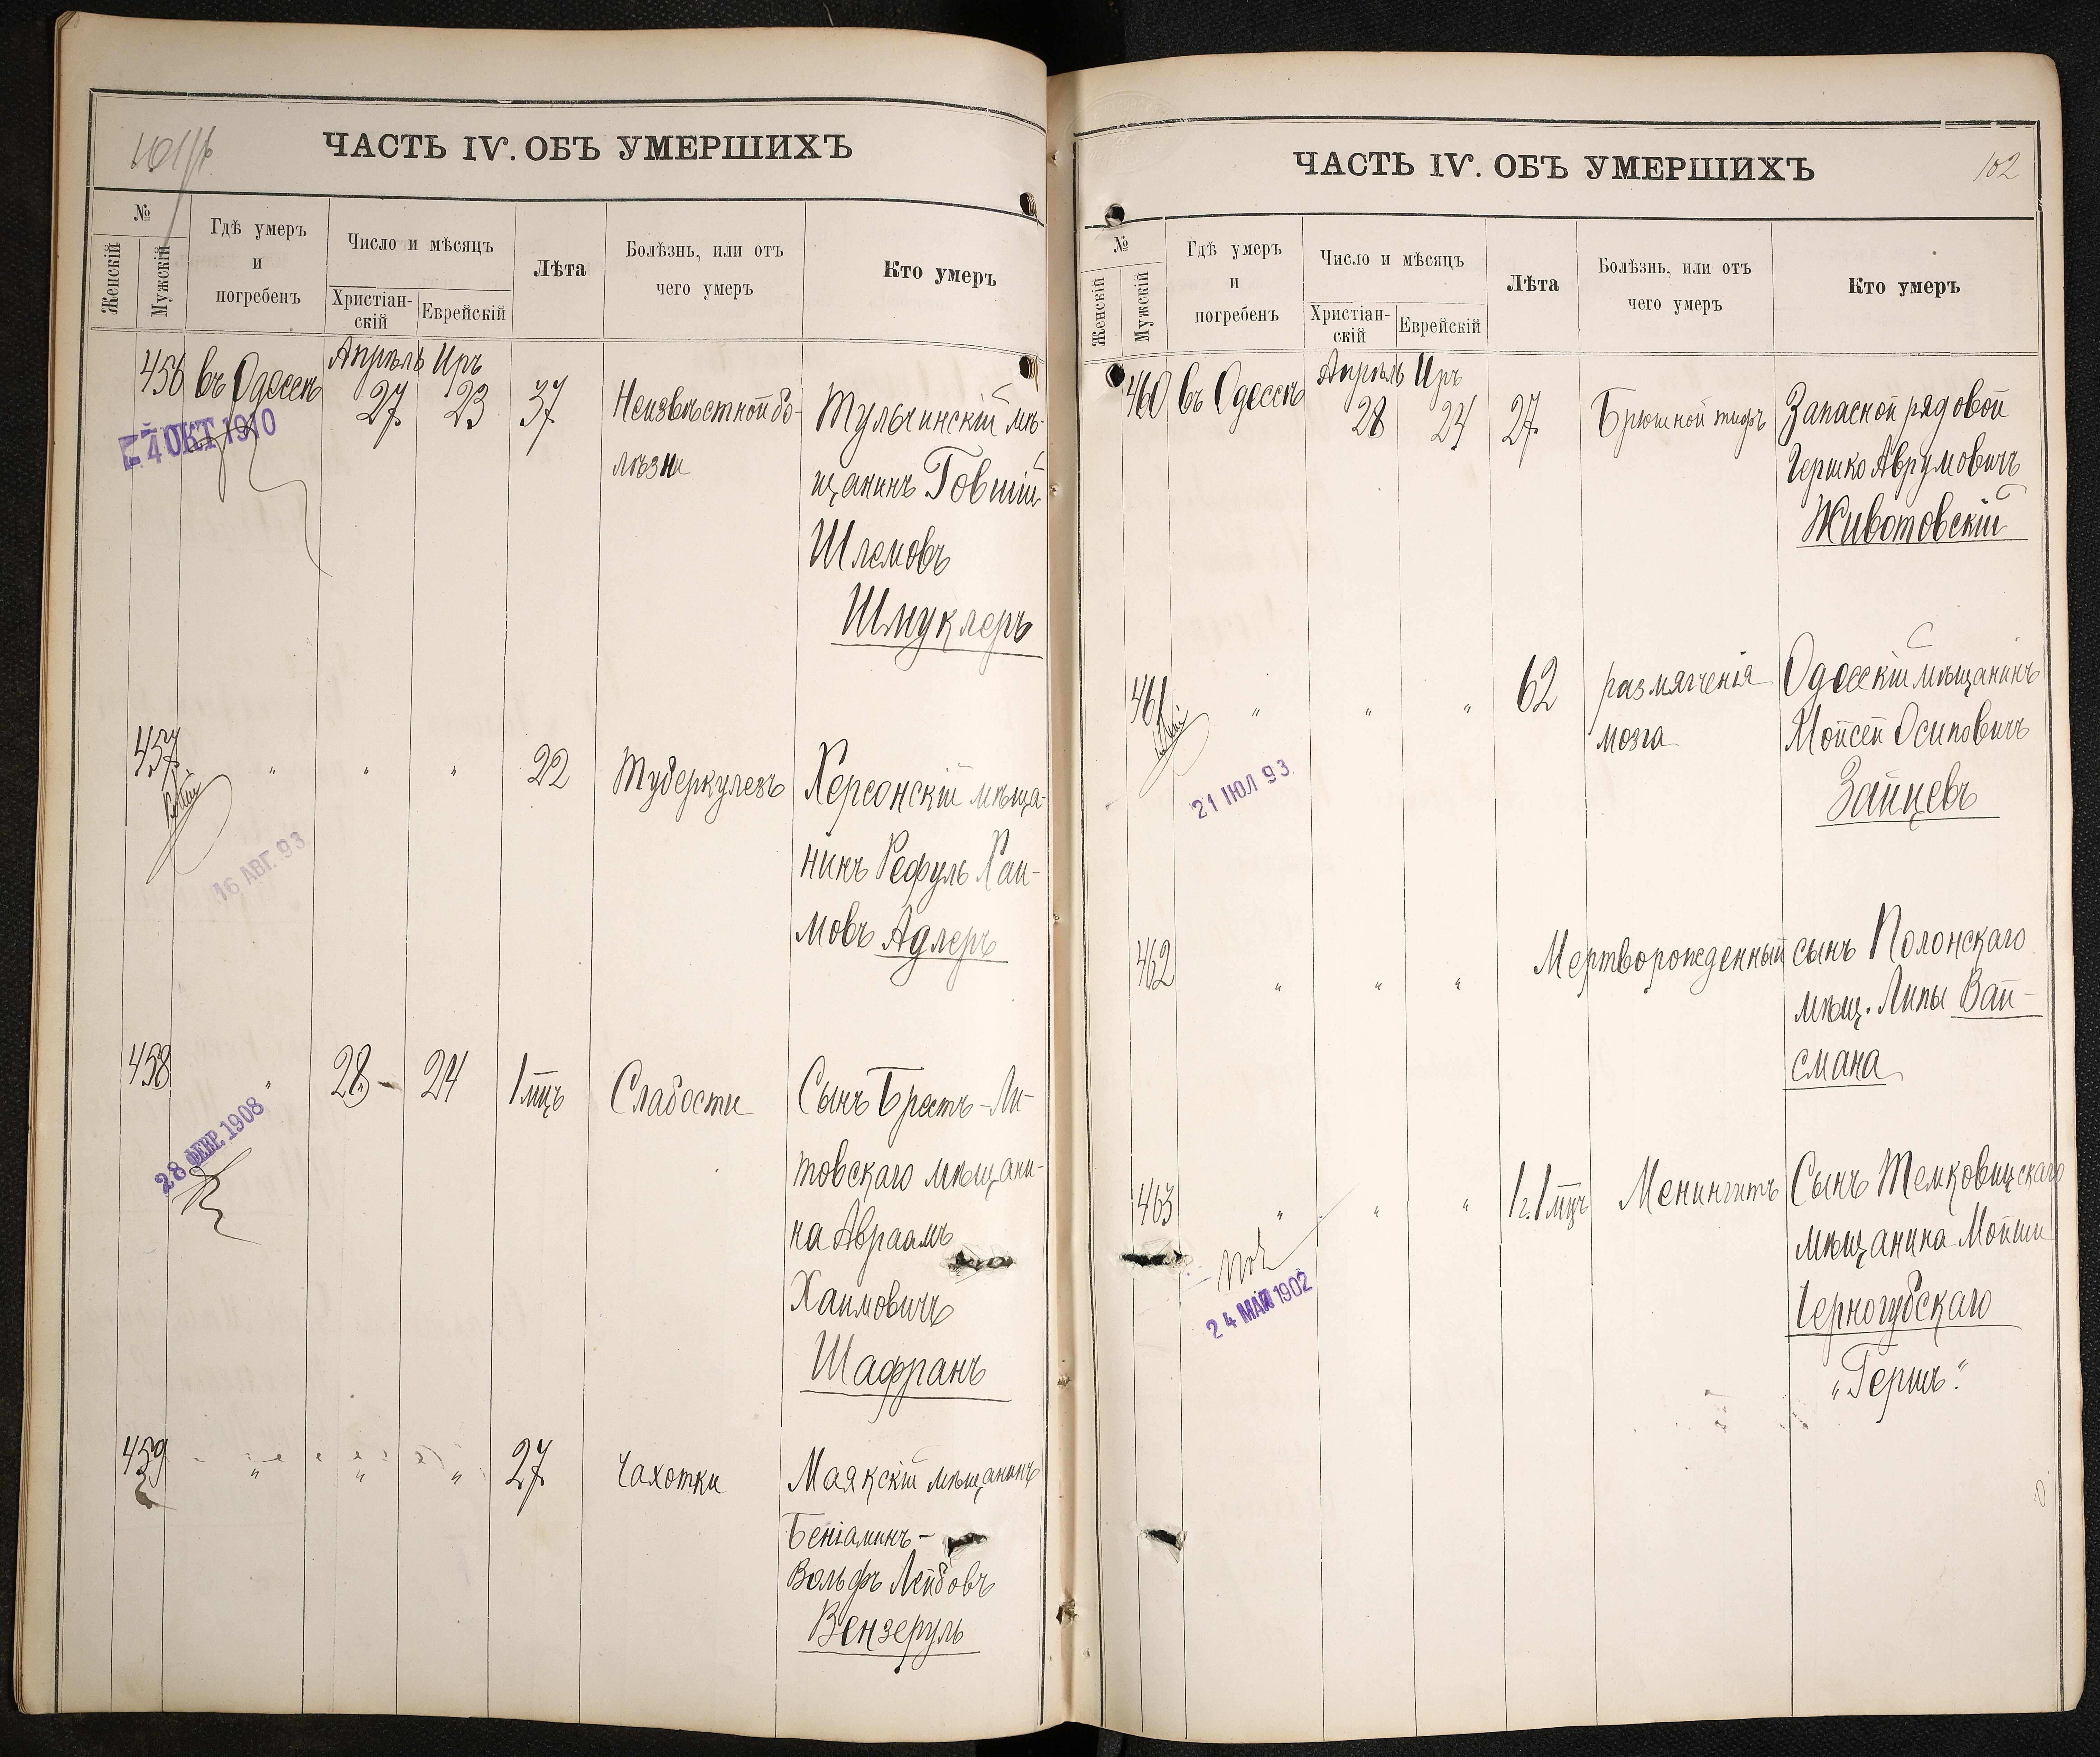 ЧАСТЬ IV. ОБЪ УМЕРШИХЪ
№
Женскій
Мужскій
Гдѣ умеръ
и
погребенъ
Число и мѣсяцъ
Христіан-
скій
Еврейскій
Лѣта
Болѣзнь, или отъ
чего умеръ
Кто умеръ
456 въ Одессѣ Апрѣль 27 Иръ 23 37
Неизвѣстной бо-
лѣзни
Тульчинскій мѣ-
щанинъ Говшій
Шлемовъ
Шмуклеръ
4 ОКТ 1910
457 " " " 22 Туберкулезъ
Херсонскій мѣща-
нинъ Рефуль Хаи-
мовъ Адлеръ
16 АВГ. 93
458 " 28 - 24 1 мцъ Слабости
Сынъ Брестъ-Ли-
товскаго мѣщани-
на Авраамъ
Хаимовичъ
Шафранъ
28 ФЕВР. 1908
459 " " " 27 Чахотки
Маякскій мѣщанинъ
Беніаминъ-
Вольфъ Лейбовъ
Вензеруль
ЧАСТЬ IV. ОБЪ УМЕРШИХЪ
102
№
Женскій
Мужскій
Гдѣ умеръ
и
погребенъ
Число и мѣсяцъ
Христіан-
скій
Еврейскій
Лѣта
Болѣзнь, или отъ
чего умеръ
Кто умеръ
460 въ Одессѣ Апрѣль 28 Иръ 24 27 Брюшной тифъ
Запасной рядовой
Гершко Аврумовичъ
Животовскій
461 " " " 62 размягченія
мозга
Одесскій мѣщанинъ
Мойсей Осиповичъ
Зайцевъ
21 ІЮЛ 93.
462 " " " Мертворожденный сынъ Полонскаго
мѣщ. Липы Вай-
смана
463 " " " 1 г. 1 мцъ Менингитъ
Сынъ Темковицскаго
мѣщанина Мойши
Черногубскаго
"Гершъ".
24 МАЯ 1902